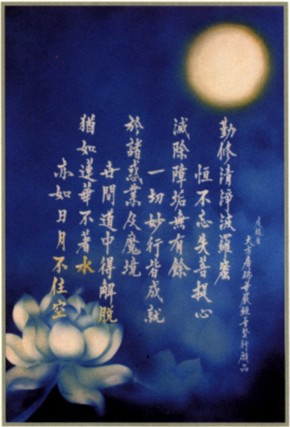 大方廣佛華嚴經普賢行願品
勤修清淨波羅蜜
恒不忘失菩提心
滅除障垢無有餘
一切妙行皆成就
於諸惑業及魔境
世間道中得解脫
猶如蓮華不著水
亦如日月不住空